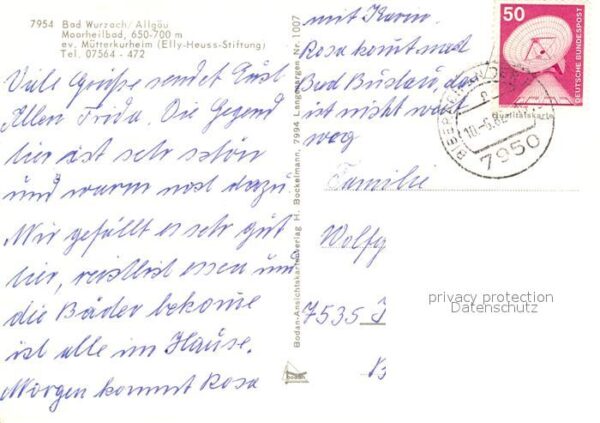 7954 Bad Wurzach/Allgäu
Moorheilbad, 650-700 m
ev. Mütterkurheim (Elly-Heuss-Stiftung)
Tel. 07564 - 472
Viele Grüße sendet Eust
Allen Frida. Die Gegend
hier ist sehr schön
und warm nost dazu.
Mir gefällt es sehr gut
hier, essen und
die Bäder bekome
ist alle im Hause.
Morgen kommt Rosa
Bodan-Ansichtskartenverlag H. Bockelmann, 7994 Langenargen Nr. 1007
bodan
mit Karin.
Rosa komt nach
Bad Buchau, das
ist nicht weit
weg
50
DEUTSCHE BUNDESPOST
Qualitätskarte
10.-6.8
7950
Familie
Wolfg
7535
privacy protection
Datenschutz